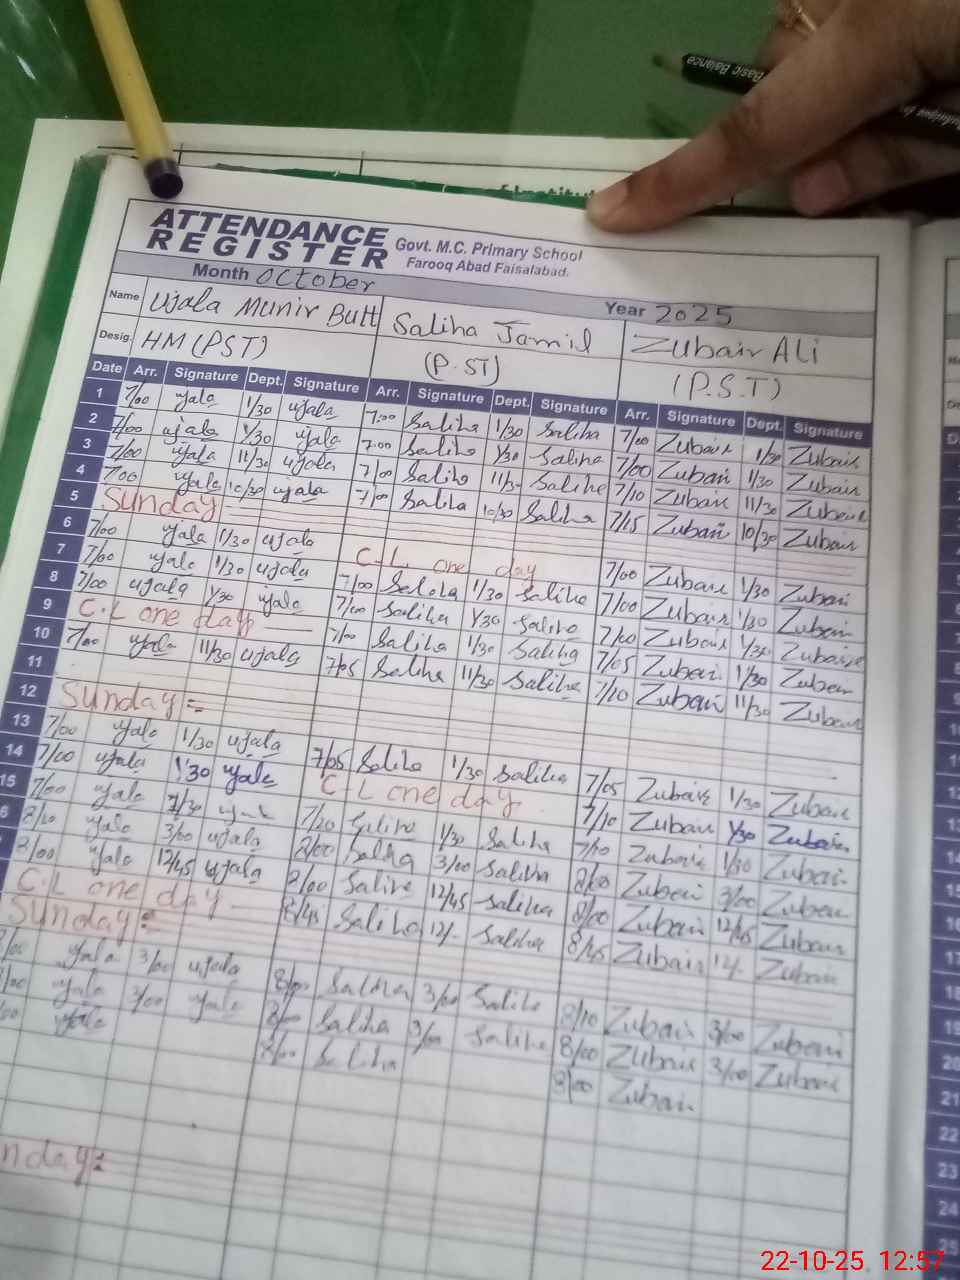 Basic Balance
ATTENDANCE
REGISTER
Govt. M.C. Primary School
Farooq Abad Faisalabad.
Month October
Year 2025
Name Ujala Munir Butt Saliha Jamil Zubair Ali
Desig. HM (PST) (P.ST) (P.S.T)
Date Arr. Signature Dept. Signature Arr. Signature Dept. Signature Arr. Signature Dept. Signature
1 7/00 ujala 1/30 ujala 7:00 Saliha 1/30 Saliha 7/00 Zubair 1/30 Zubair
2 7/00 ujala 1/30 ujala 7:00 Saliha 1/30 Saliha 7/00 Zubair 1/30 Zubair
3 7/00 ujala 11/30 ujala 7/00 Saliha 11/30 Saliha 7/10 Zubair 11/30 Zubair
4 7/00 ujala 10/30 ujala 7/00 Saliha 10/30 Saliha 7/15 Zubair 10/30 Zubair
5 Sunday
6 7/00 ujala 1/30 ujala C.L one day 7/00 Zubair 1/30 Zubair
7 7/00 ujala 1/30 ujala 7/00 Saliha 1/30 Saliha 7/00 Zubair 1/30 Zubair
8 7/00 ujala 1/30 ujala 7/00 Saliha 1/30 Saliha 7/00 Zubair 1/30 Zubair
9 C.L one day 7/00 Saliha 1/30 Saliha 7/05 Zubair 1/30 Zubair
10 7/00 ujala 11/30 ujala 7/05 Saliha 11/30 Saliha 7/10 Zubair 11/30 Zubair
11
12 Sunday
13 7/00 ujala 1/30 ujala 7/05 Saliha 1/30 Saliha 7/05 Zubair 1/30 Zubair
14 7/00 ujala 1/30 ujala C.L one day 7/10 Zubair 1/30 Zubair
15 7/00 ujala ujala Saliha 1/30 Saliha 7/10 Zubair 1/30 Zubair
6 8/10 ujala 3/00 ujala 8/00 Saliha 3/00 Saliha 8/00 Zubair 3/00 Zubair
8/00 ujala 12/45 ujala 8/00 Saliha 12/45 Saliha 8/00 Zubair 12/45 Zubair
C.L one day 8/45 Saliha 12/- Saliha 8/45 Zubair 12/- Zubair
Sunday
ujala 3/00 ujala 8/00 Saliha 3/00 Saliha 8/10 Zubair 3/00 Zubair
ujala 3/00 ujala 8/00 Saliha 3/00 Saliha 8/00 Zubair 3/00 Zubair
ujala 8/00 Saliha 8/00 Zubair
nday
19
20
21
22
23
24
25
22-10-25 12:57